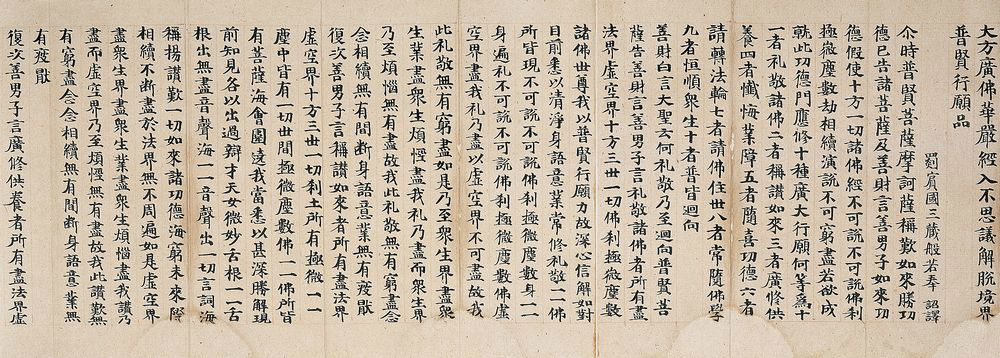 大方廣佛華嚴經入不思議解脫境界
普賢行願品
罽賓國三藏般若奉 詔譯
尒時普賢菩薩摩訶薩稱歎如來勝功
德已告諸菩薩及善財言善男子如來功
德假使十方一切諸佛經不可說不可說佛剎
極微塵數劫相續演說不可窮盡若欲成
就此功德門應修十種廣大行願何等為十
一者礼敬諸佛二者稱讚如來三者廣修供
養四者懺悔業障五者隨喜功德六者
請轉法輪七者請佛住世八者常隨佛學
九者恒順衆生十者普皆迴向
善財白言大聖云何礼敬乃至迴向普賢菩
薩告善財言善男子言礼敬諸佛者所有盡
法界虛空界十方三世一切佛剎極微塵數
諸佛世尊我以普賢行願力故深心信解如對
目前悉以清淨身語意業常修礼敬一一佛
所皆現不可說不可說佛剎極微塵數身一一
身遍礼不可說不可說佛剎極微塵數佛虛
空界盡我礼乃盡以虛空界不可盡故我
此礼敬無有窮盡如是乃至衆生界盡衆
生業盡衆生煩惱盡我礼乃盡而衆生界
乃至煩惱無有盡故我此礼敬無有窮盡念
念相續無有間斷身語意業無有疲猒
復次善男子言稱讚如來者所有盡法界
虛空界十方三世一切剎土所有極微一一
塵中皆有一切世間極微塵數佛一一佛所皆
有菩薩海會圍遶我當悉以甚深勝解現
前知見各以出過辯才天女微妙舌根一一舌
根出無盡音聲海一一音聲出一切言詞海
稱揚讚歎一切如來諸功德海窮未來際
相續不斷盡於法界無不周遍如是虛空界
盡衆生界盡衆生業盡衆生煩惱盡我讚乃
盡而虛空界乃至煩惱無有盡故我此讚歎無
有窮盡念念相續無有間斷身語意業無
有疲猒
復次善男子言廣修供養者所有盡法界虛